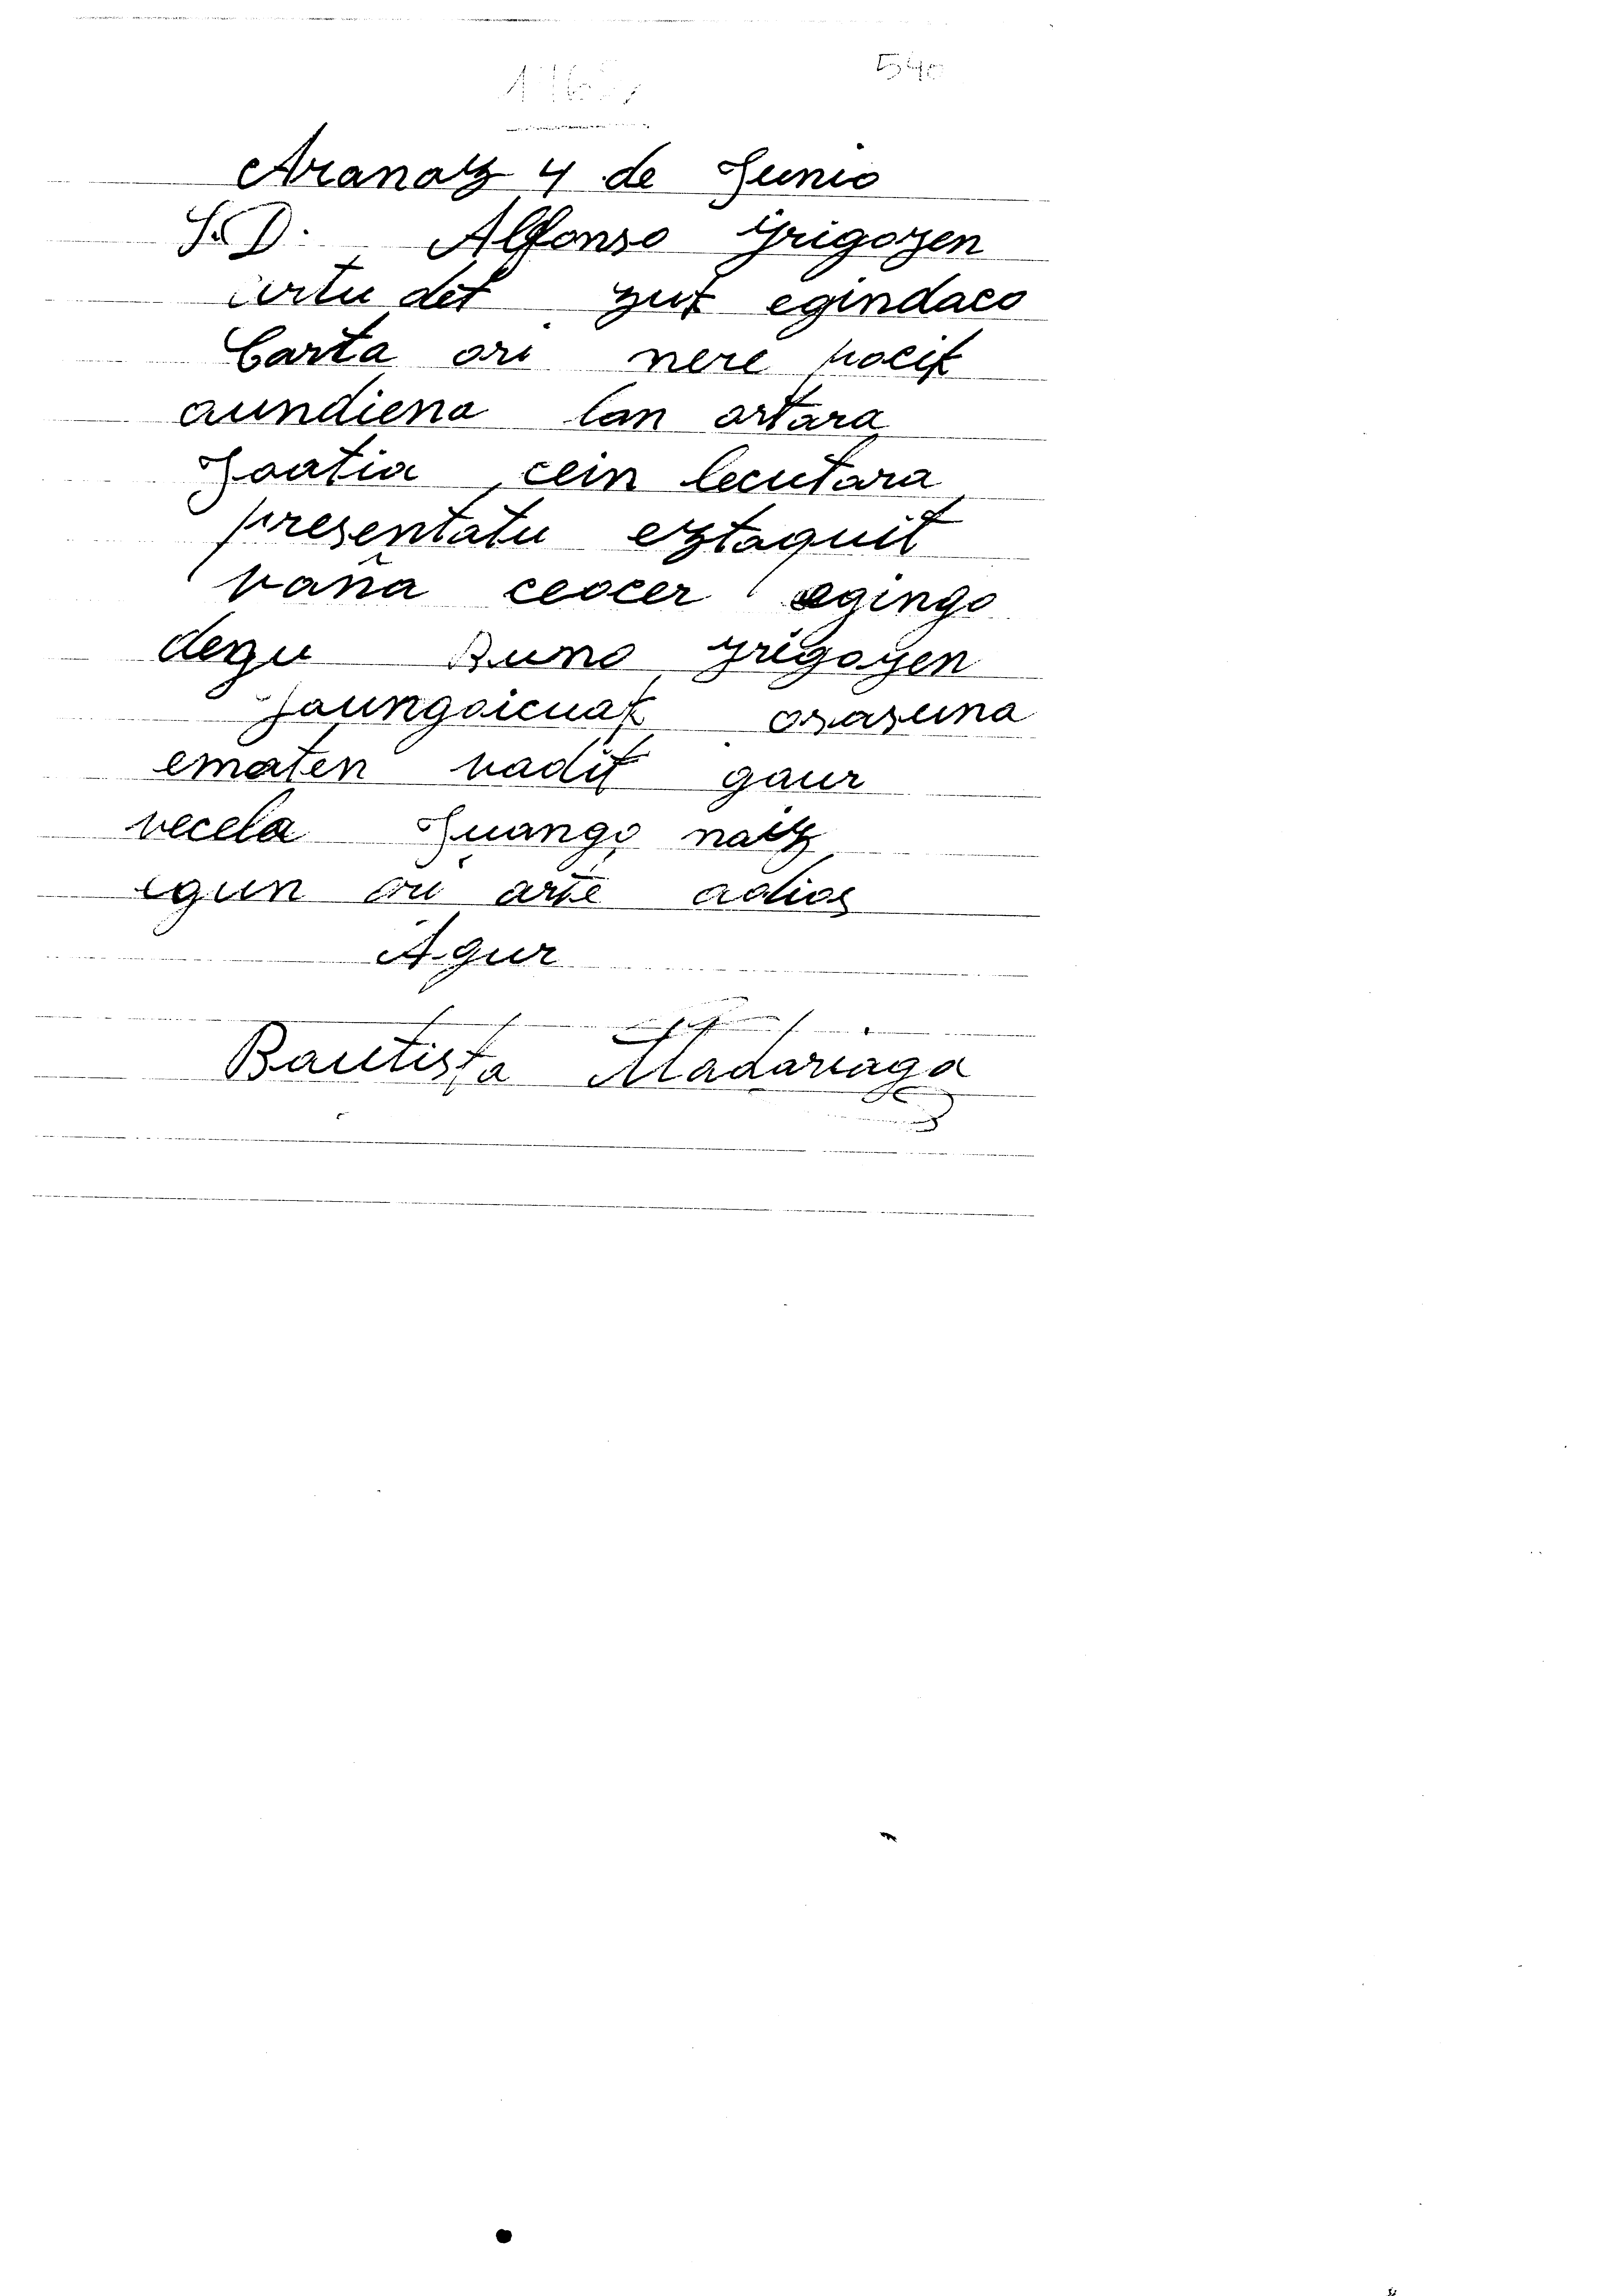 540
Aranatz 4 de Junio
Sr D. Alfonso Yrigoyen
artu det zuk egindaco
Carta ori nere pocik
aundiena lan ortara
Joatia cein lecutara
presentatu eztaquit
vaña ceocer egingo
degu Buno Yrigoyen
Jaungoicuak osasuna
ematen vadit gaur
vecela Juango naitz
egun ori arte adios
Agur
Bautista Madariaga